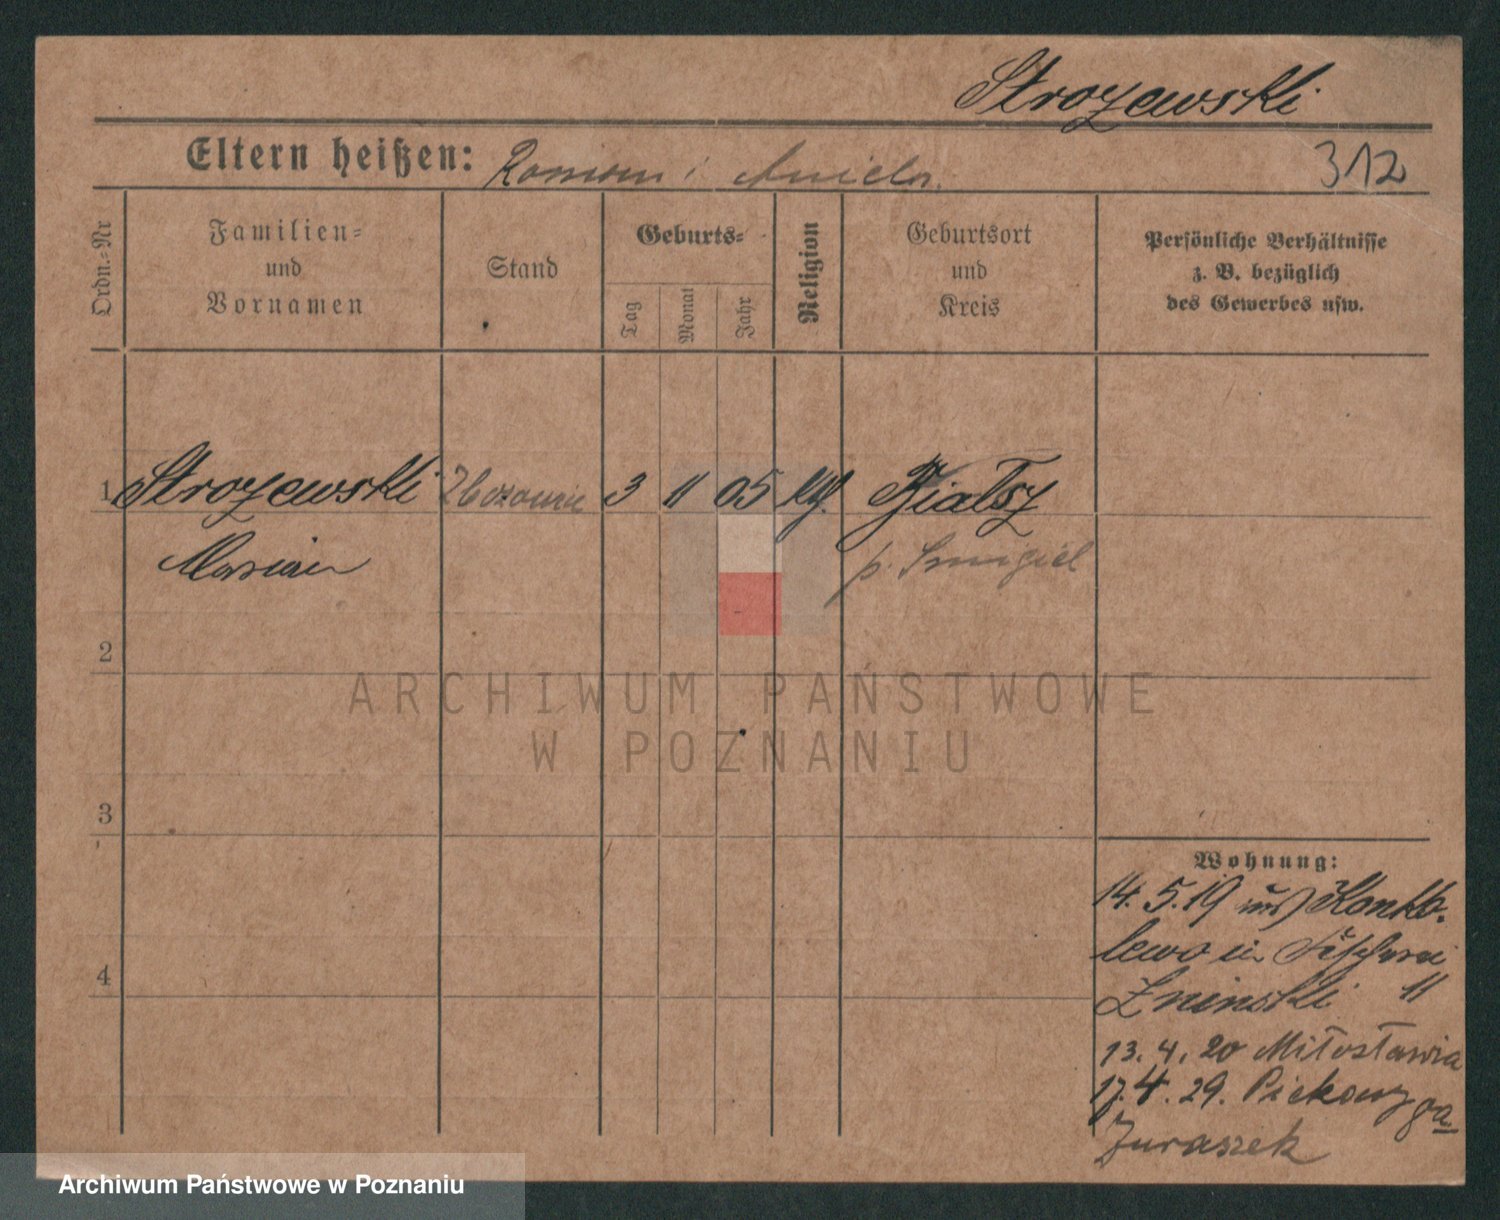 Strozewski
Eltern heißen: Roman i Aniela.
312
Ordn.-Nr
Familien-
und
Vornamen
Stand
Geburts-
Tag
Monat
Jahr
Religion
Geburtsort
und
Kreis
Persönliche Verhältnisse
z. B. bezüglich
des Gewerbes usw.
1 Strozewski 3 11 05
Marian p. Smigiel
2
ARCHIWUM PAŃSTWOWE
W POZNANIU
3
4
Wohnung:
14. 5. 19 Konko-
lewo
Żninski 11
13. 4. 20 Miłosławia
17. 4. 29. Piekary
Juraszek
Archiwum Państwowe w Poznaniu